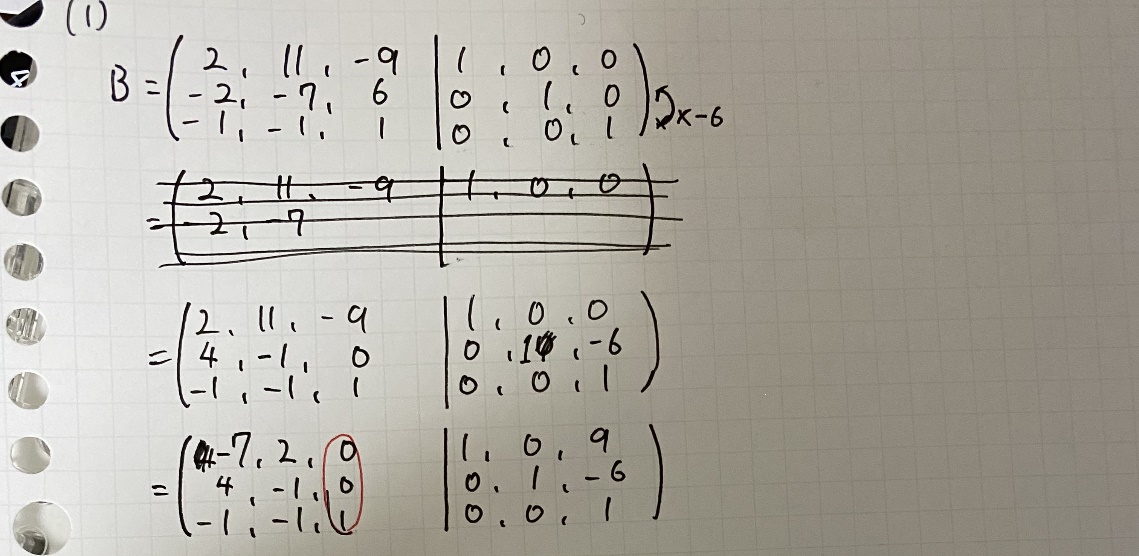 (1)
B = ( 2, 11, -9 | 1, 0, 0 )
-2, -7, 6 | 0, 1, 0 ) ×-6
-1, -1, 1 | 0, 0, 1
2, 11, -9 | 1, 0, 0
= -2, -7
( 2, 11, -9 | 1, 0, 0 )
= 4, -1, 0 | 0, 1, -6
-1, -1, 1 | 0, 0, 1
( -7, 2, 0 | 1, 0, 9 )
= 4, -1, 0 | 0, 1, -6
-1, -1, 1 | 0, 0, 1